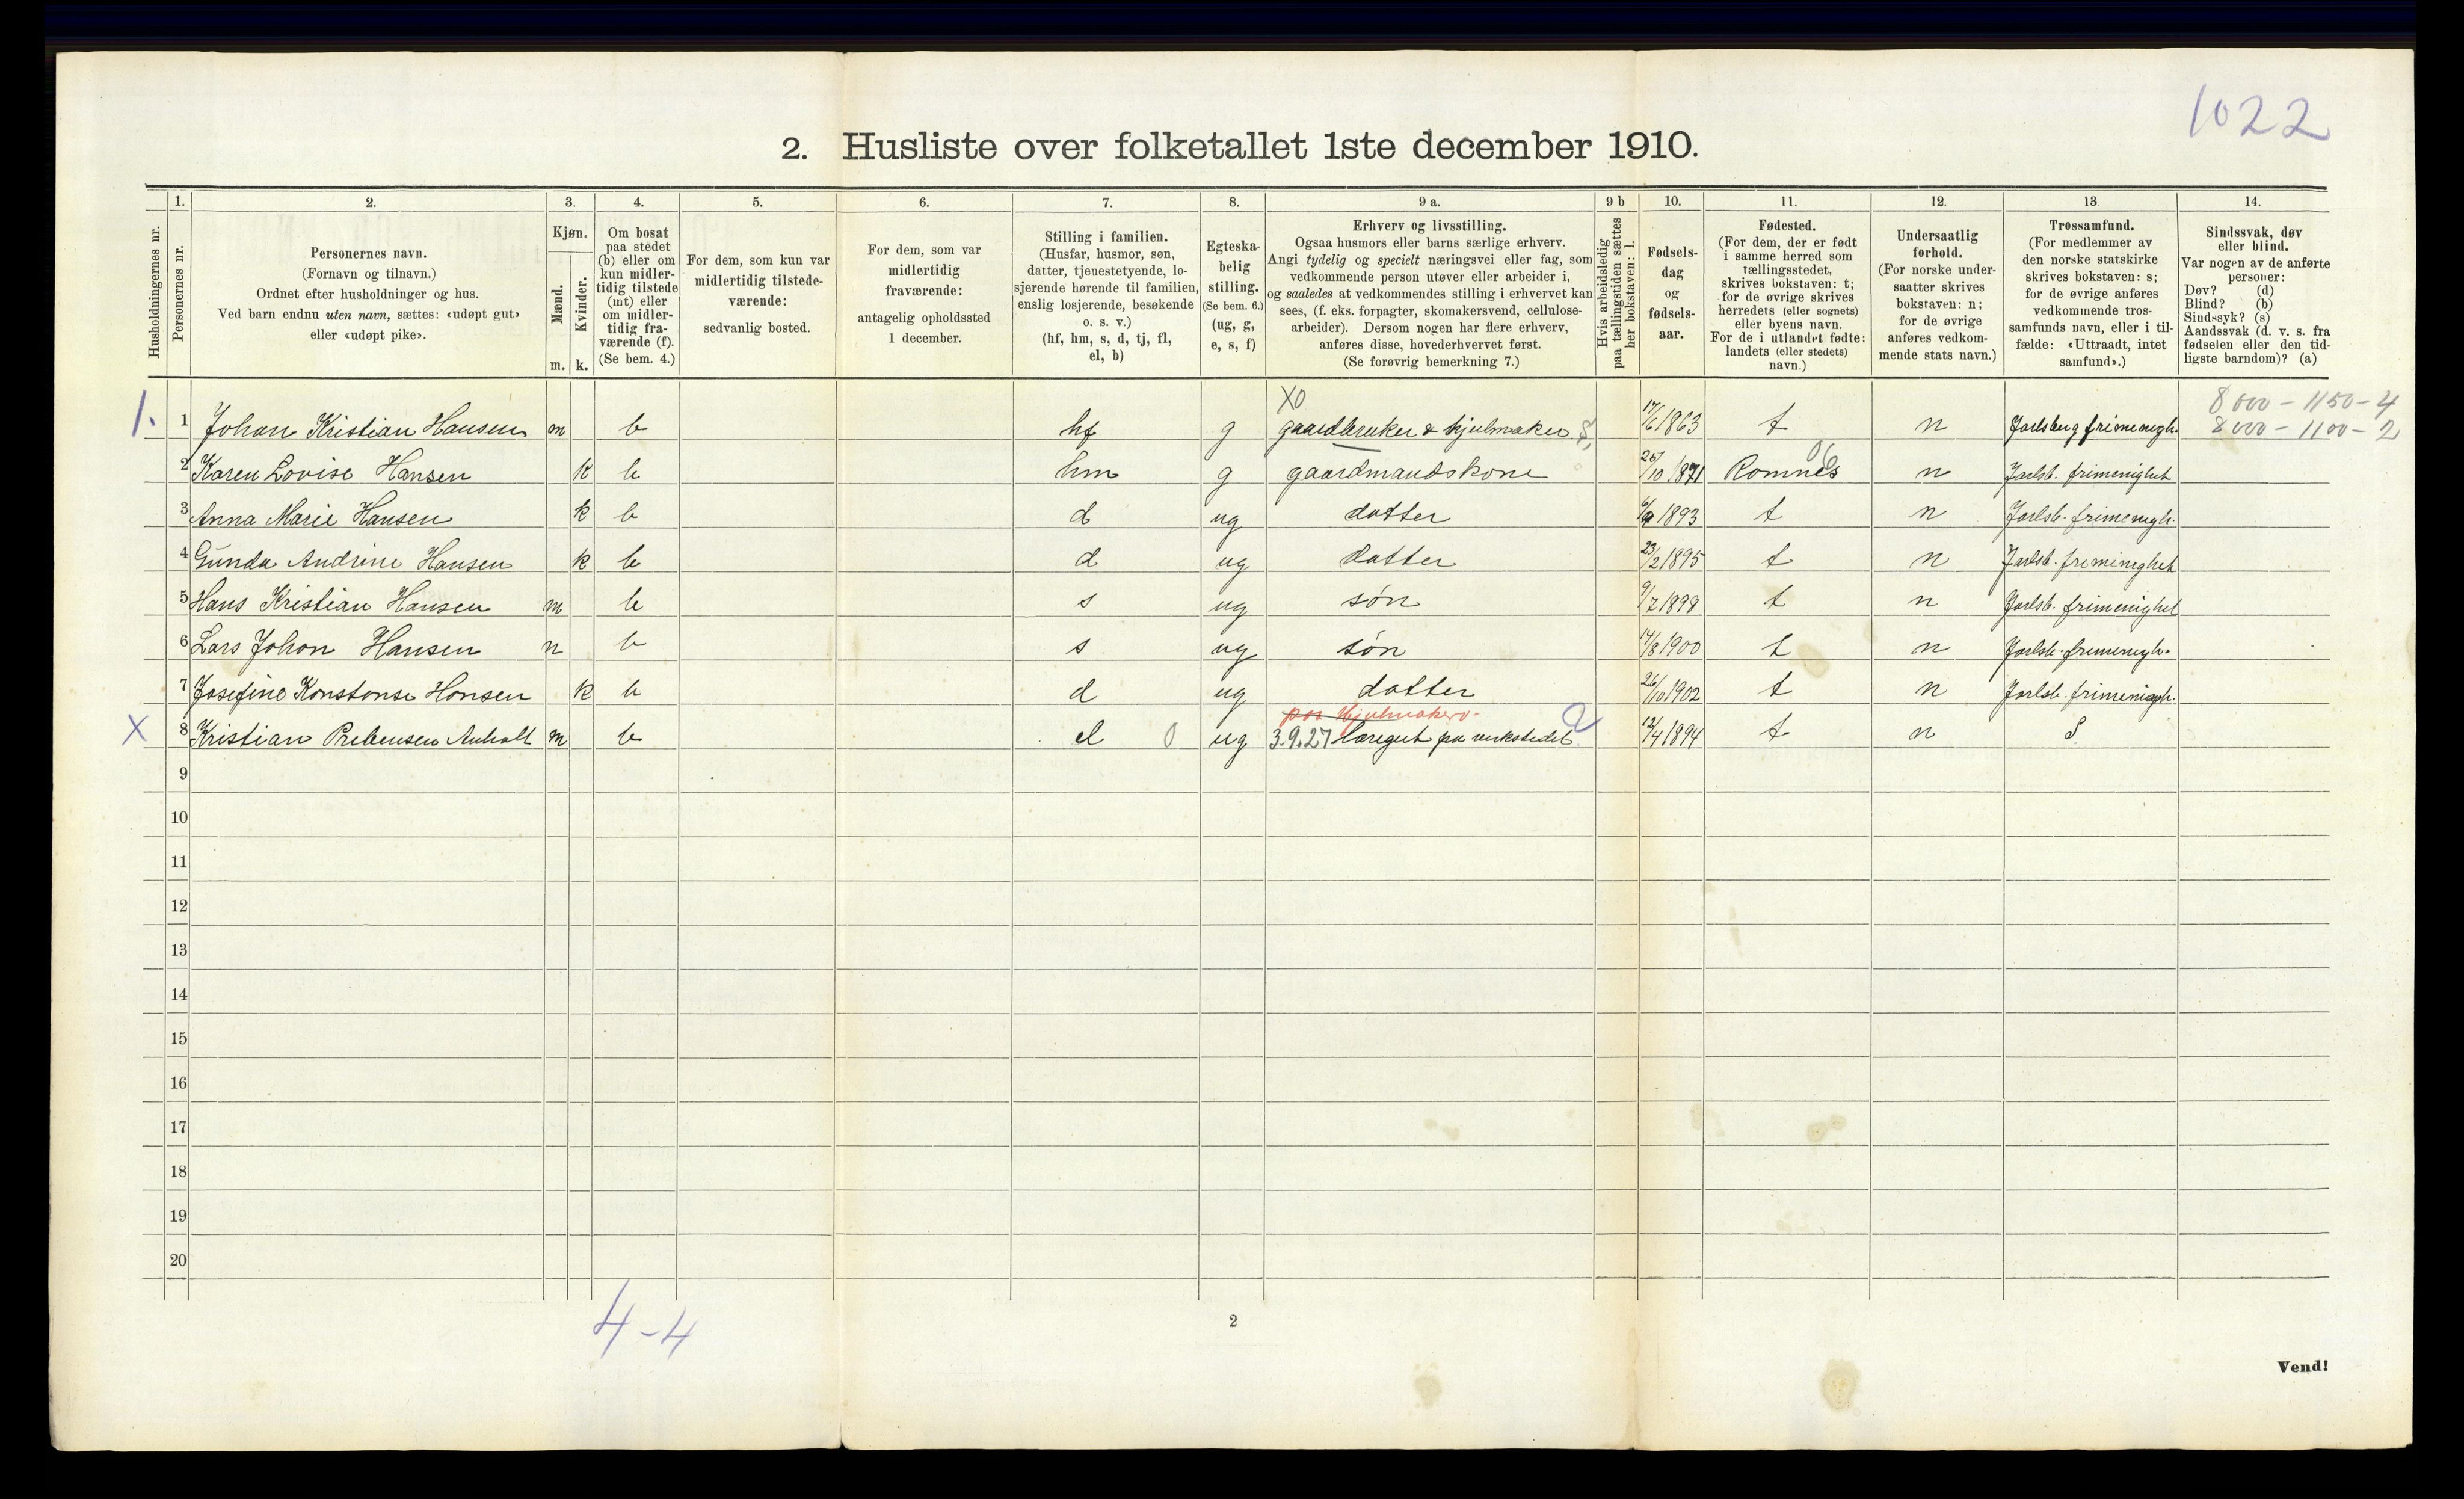 1022
2. Husliste over folketallet 1ste december 1910.
1. 2. 3. 4. 5. 6. 7. 8. 9 a. 9 b 10. 11. 12. 13 14.
Husholdningernes nr.
Personernes nr.
Personernes navn.
(Fornavn og tilnavn.)
Ordnet efter husholdninger og hus.
Ved barn endnu uten navn, sættes: «udøpt gut»
eller «udøpt pike».
Kjøn.
Mænd.
Kvinder.
m. k.
Om bosat
paa stedet
(b) eller om
kun midler-
tidig tilstede
(mt) eller
om midler-
tidig fra-
værende (f).
(Se bem. 4.)
For dem, som kun var
midlertidig tilstede-
værende:
sedvanlig bosted.
For dem, som var
midlertidig
fraværende:
antagelig opholdssted
1 december.
Stilling i familien.
(Husfar, husmor, søn,
datter, tjenestetyende, lo-
sjerende hørende til familien,
enslig losjerende, besøkende
o. s. v.)
(hf, hm, s, d, tj, fl,
el, b)
Egteska-
belig
stilling.
(Se bem. 6.)
(ug, g,
e, s, f)
Erhverv og livsstilling.
Ogsaa husmors eller barns særlige erhverv.
Angi tydelig og specielt næringsvei eller fag, som
vedkommende person utøver eller arbeider i,
og saaledes at vedkommendes stilling i erhvervet kan
sees, (f. eks. forpagter, skomakersvend, cellulose-
arbeider). Dersom nogen har flere erhverv,
anføres disse, hovederhvervet først.
(Se forøvrig bemerkning 7.)
Hvis arbeidsledig
paa tællingstiden sættes
her bokstaven: l.
Fødsels-
dag
og
fødsels-
aar.
Fødested.
(For dem, der er født
i samme herred som
tællingsstedet,
skrives bokstaven: t;
for de øvrige skrives
herredets (eller sognets)
eller byens navn.
For de i utlandet fødte:
landets (eller stedets)
navn.)
Undersaatlig
forhold.
(For norske under-
saatter skrives
bokstaven: n;
for de øvrige
anføres vedkom-
mende stats navn.)
Trossamfund.
(For medlemmer av
den norske statskirke
skrives bokstaven: s;
for de øvrige anføres
vedkommende tros-
samfunds navn, eller i til-
fælde: «Uttraadt, intet
samfund».)
Sindssvak, døv
eller blind.
Var nogen av de anførte
personer:
Døv? (d)
Blind? (b)
Sindssyk? (s)
Aandssvak (d. v. s. fra
fødselen eller den tid-
ligste barndom)? (a)
X0
8000 - 1150 - 4
1. 1 Johan Kristian Hansen m b hf g gaardbruker & hjulmaker 17/6 1863 t n Jarlsberg frimenigh. 8000 - 1100 - 2
06
2 Karen Lovise Hansen k b hm g gaardmandskone 25/10 1871 Romnes n Jarlsb. frimenighet
3 Anna Marie Hansen k b d ug datter 6/9 1893 t n Jarlsb. frimenigh.
4 Gunda Andrine Hansen k b d ug datter 23/2 1895 t n Jarlsb. frimenighet
5 Hans Kristian Hansen m b s ug søn 9/7 1898 t n Jarlsb. frimenighet
6 Lars Johan Hansen m b s ug søn 14/8 1900 t n Jarlsb. frimenigh.
7 Josefine Konstanse Hansen k b d ug datter 26/10 1902 t n Jarlsb. frimenigh.
paa Hjulmakerv.
X 8 Kristian Prebensen Anholt m b el 0 ug 3.9.27 Læregut pa verkstedet 12/4 1894 t n S
9
10
11
12
13
14
15
16
17
18
19
20
4-4
2
Vend!